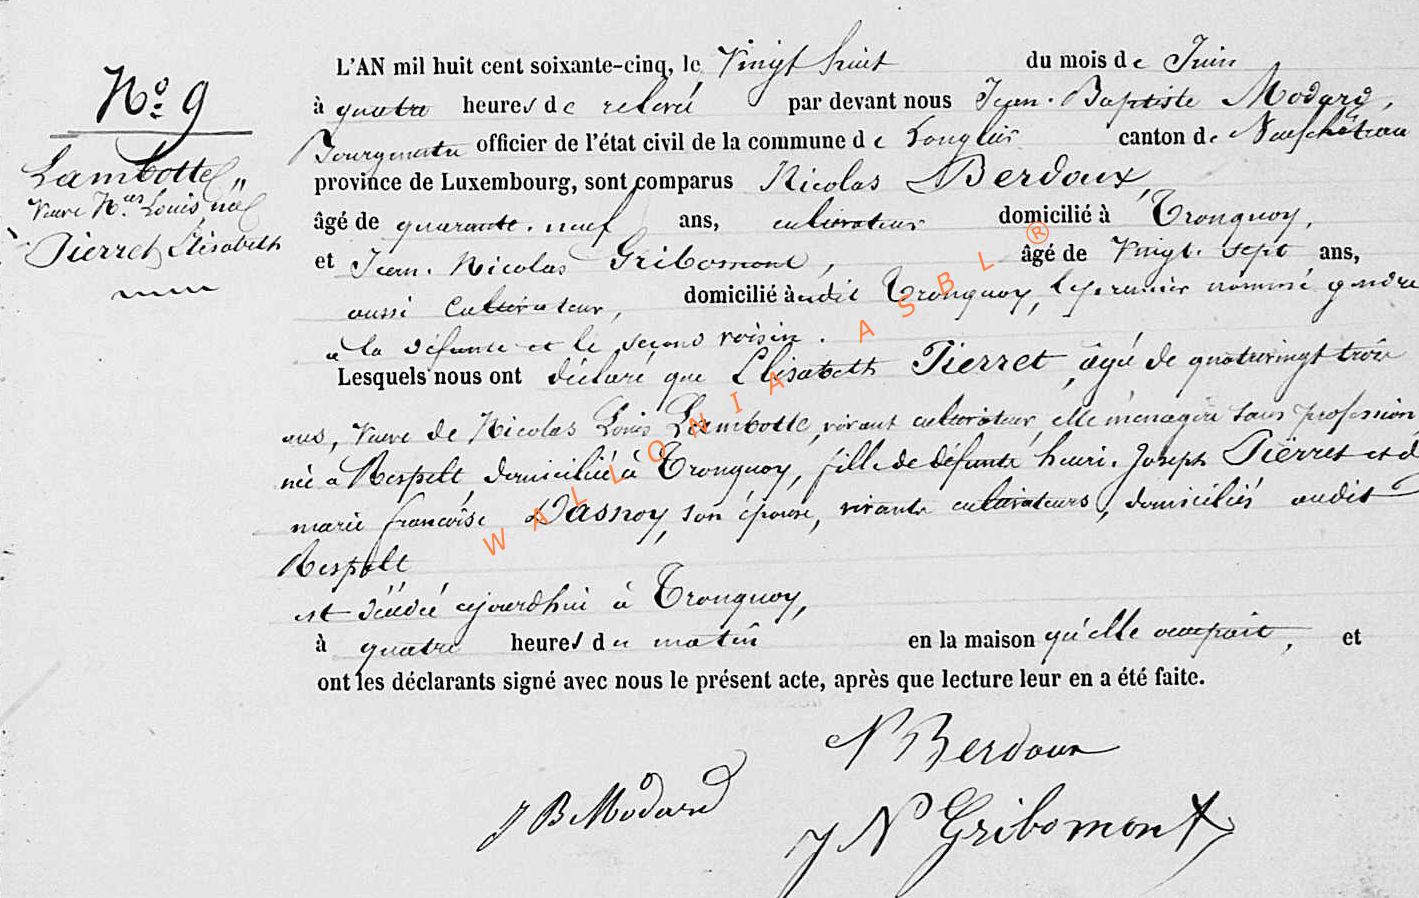 No. 9
Lambotte,,
Veuve N.as Louis, née
Pierret Elisabeth
L'AN mil huit cent soixante-cinq, le Vingt huit du mois de Juin
à quatre heures de relevé par devant nous Jean-Baptiste Modard,
Bourgmestre officier de l'état civil de la commune de Longlier canton de Neufchâteau
province de Luxembourg, sont comparus Nicolas Berdoux,
âgé de quarante-neuf ans, cultivateur domicilié à Tronquoy,
et Jean-Nicolas Gribomont, âgé de Vingt-sept ans,
aussi cultivateur, domicilié audit Tronquoy, le premier nommé gendre
à la défunte et le second voisin.
Lesquels nous ont déclaré que Elisabeth Pierret, âgée de quatrevingt trois
ans, veuve de Nicolas Louis Lambotte, vivant cultivateur, elle ménagère sans profession
née à Respelt domiciliée à Tronquoy, fille de défunts henri-Joseph Pierret et d
marie françoise Dasnoy, son épouse, vivants cultivateurs, domiciliés audit
Respelt
est décédée aujourdhui à Tronquoy,
à quatre heures du matin en la maison qu'elle occupait, et
ont les déclarants signé avec nous le présent acte, après que lecture leur en a été faite.
N Berdoux
J B Modard
J N Gribomont
WALLONIA ASBL ®